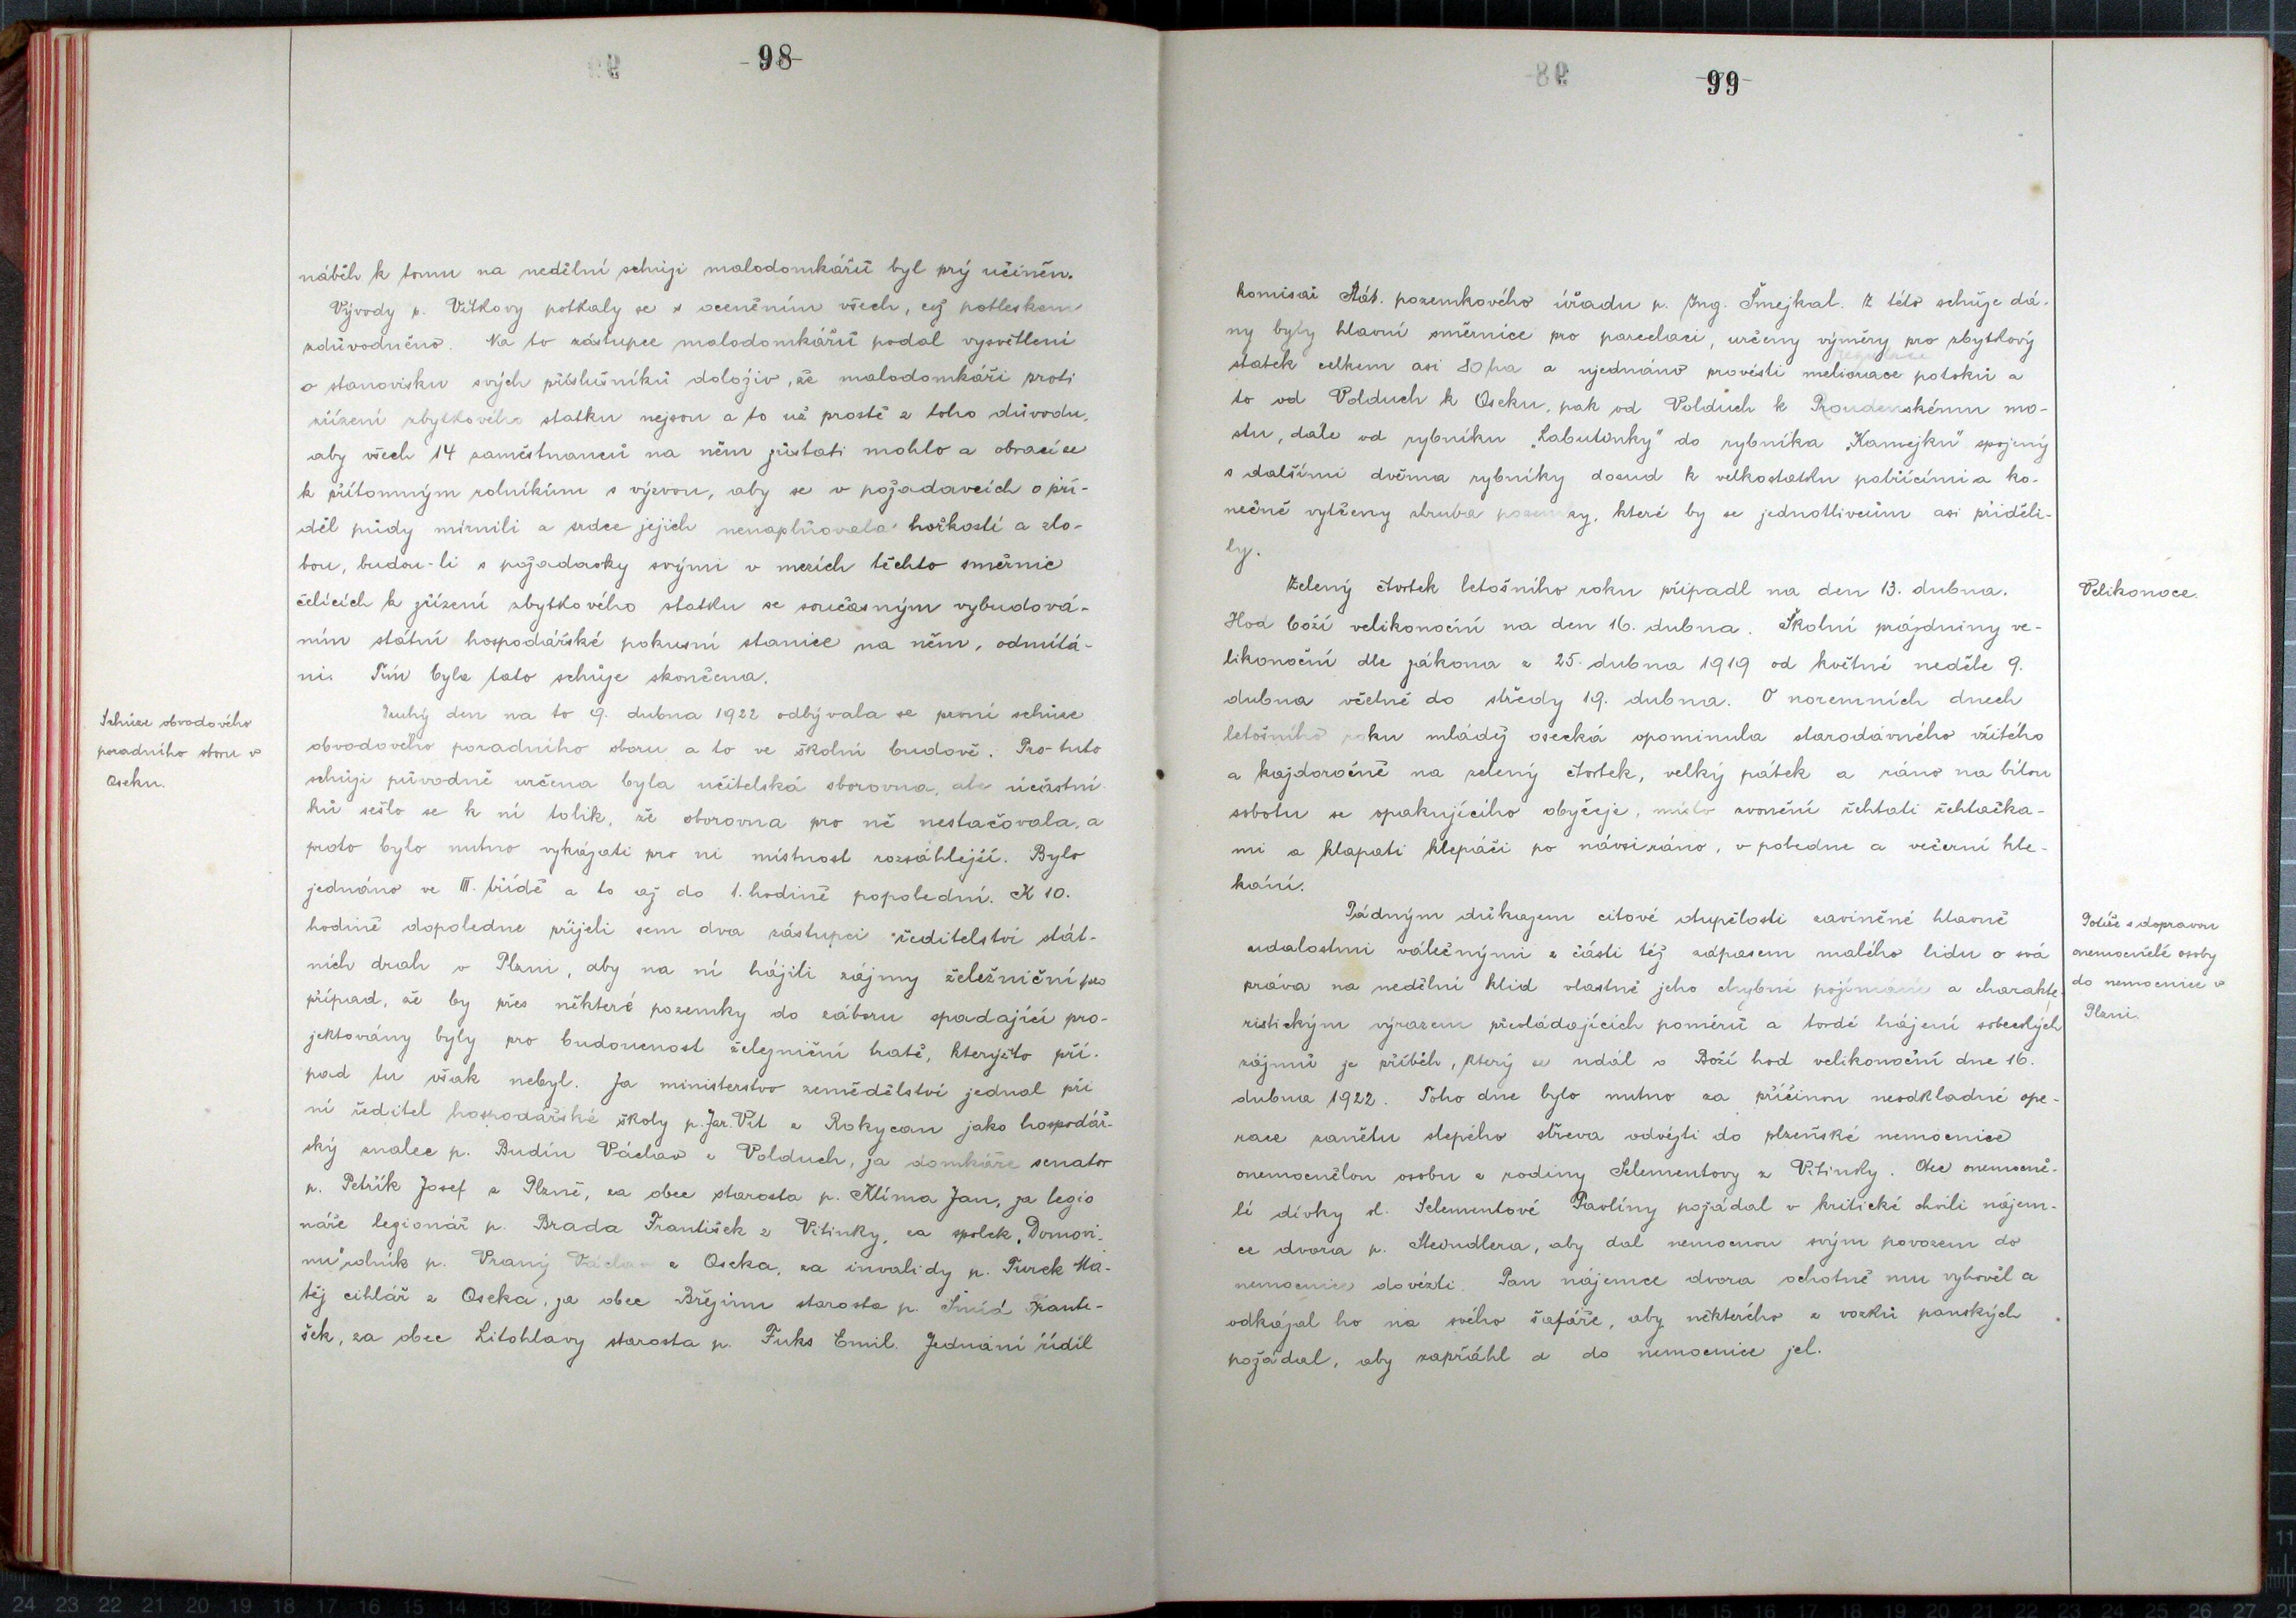 98
náběh k tomu na nedělní schůzi malodomkářů byl prý učiněn.
Vývody p. Vítkovy potkaly se s oceněním všech, což potleskem
zdůvodněno. Na to zástupce malodomkářů podal vysvětlení
o stanovisku svých příslušníků doloživ, že malodomkáři proti
zřízení zbytkového statku nejsou a to už prostě z toho důvodu,
aby všech 14 zaměstnanců na něm zůstati mohlo a obrací se
k přítomným rolníkům s výzvou, aby se v požadavcích o pří-
děl půdy mírnili a srdce jejich nenaplňovala hořkostí a zlo-
bou, budou-li s požadavky svými v mezích těchto směrnic
čelících k zřízení zbytkového statku se současným vybudová-
ním státní hospodářské pokusní stanice na něm, odmítá-
ni. Tím byla tato schůze skončena.
Schůze obvodového
poradního sboru v
Oseku.
Druhý den na to 9. dubna 1922 odbývala se první schůze
obvodového poradního sboru a to ve školní budově. Pro tuto
schůzi původně určena byla učitelská sborovna, ale účastní-
ků sešlo se k ní tolik, že sborovna pro ně nestačovala, a
proto bylo nutno vykázati pro ni místnost rozsáhlejší. Bylo
jednáno ve III. třídě a to až do 1. hodině popolední. K 10.
hodině dopoledne přijeli sem dva zástupci ředitelství stát-
ních drah v Plzni, aby na ní hájili zájmy železniční pro
případ, že by přes některé pozemky do záboru spadající pro-
jektovány byly pro budoucnost železniční tratě, kterýžto pří-
pad tu však nebyl. Za ministerstvo zemědělství jednal při
ní ředitel hospodářské školy p. Jar. Vít z Rokycan jako hospodář-
ský znalec p. Budín Václav z Volduch, za domkáře senator
p. Petřík Josef z Plzně, za obec starosta p. Klíma Jan, za legio
náře legionář p. Brada František z Vitinky, za spolek "Domovi-
nu" rolník p. Vraný Václav z Oseka, za invalidy p. Turek Ma-
těj cihlář z Oseka, za obec Březinu starosta p. Šmíd Franti-
šek, za obec Litohlavy starosta p. Fuks Emil. Jednání řídil
99
komisař Stát. pozemkového úřadu p. Ing. Šmejkal. Z této schůze dá-
ny byly hlavní směrnice pro parcelaci, určeny výměry pro zbytkový
regulace
statek celkem asi 80 ha a ujednáno provésti meliorace potoků a
to od Volduch k Oseku, pak od Volduch k Roudenskému mo-
stu, dále od rybníku "Labutinky" do rybníka "Kamejku" spojený
s dalšími dvěma rybníky dosud k velkostatku patřícími a ko-
nečně vytčeny zhruba pozemky, které by se jednotlivcům asi příděli-
ly.
Velikonoce.
Zelený čtvrtek letošního roku připadl na den 13. dubna.
Hod boží velikonoční na den 16. dubna. Školní prázdniny ve-
likonoční dle zákona z 25. dubna 1919 od květné neděle 9.
dubna včetně do středy 19. dubna. O noremních dnech
letošního roku mládež osecká opominula starodávného vžitého
a každoročně na zelený čtvrtek, velký pátek a ráno na bílou
sobotu se opakujícího obyčeje, místo zvonění řehtati řehtačka-
mi a klapati klepáči po návsi ráno, v poledne a večerní kle-
kání.
Potíže s dopravou
onemocnělé osoby
do nemocnice v
Plzni.
Pádným důkazem citové otupělosti zaviněné hlavně
událostmi válečnými z části též zápasem malého lidu o svá
práva na nedělní klid vlastně jeho chybné pojímání a charakte-
ristickým výrazem převládajících poměrů a tvrdé hájení sobeckých
zájmů je příběh, který se udál o Boží hod velikonoční dne 16.
dubna 1922. Toho dne bylo nutno za příčinou neodkladné ope-
race zanětu slepého střeva odvézti do plzeňské nemocnice
onemocnělou osobu z rodiny Selementovy z Vitinky. Otec onemocně-
lé dívky sl. Selementové Pavlíny požádal v kritické chvíli nájem-
ce dvora p. Steindlera, aby dal nemocnou svým povozem do
nemocnice dovézti. Pan nájemce dvora ochotně mu vyhověl a
odkázal ho na svého šafáře, aby některého z vozků panských
požádal, aby zapřáhl a do nemocnice jel.